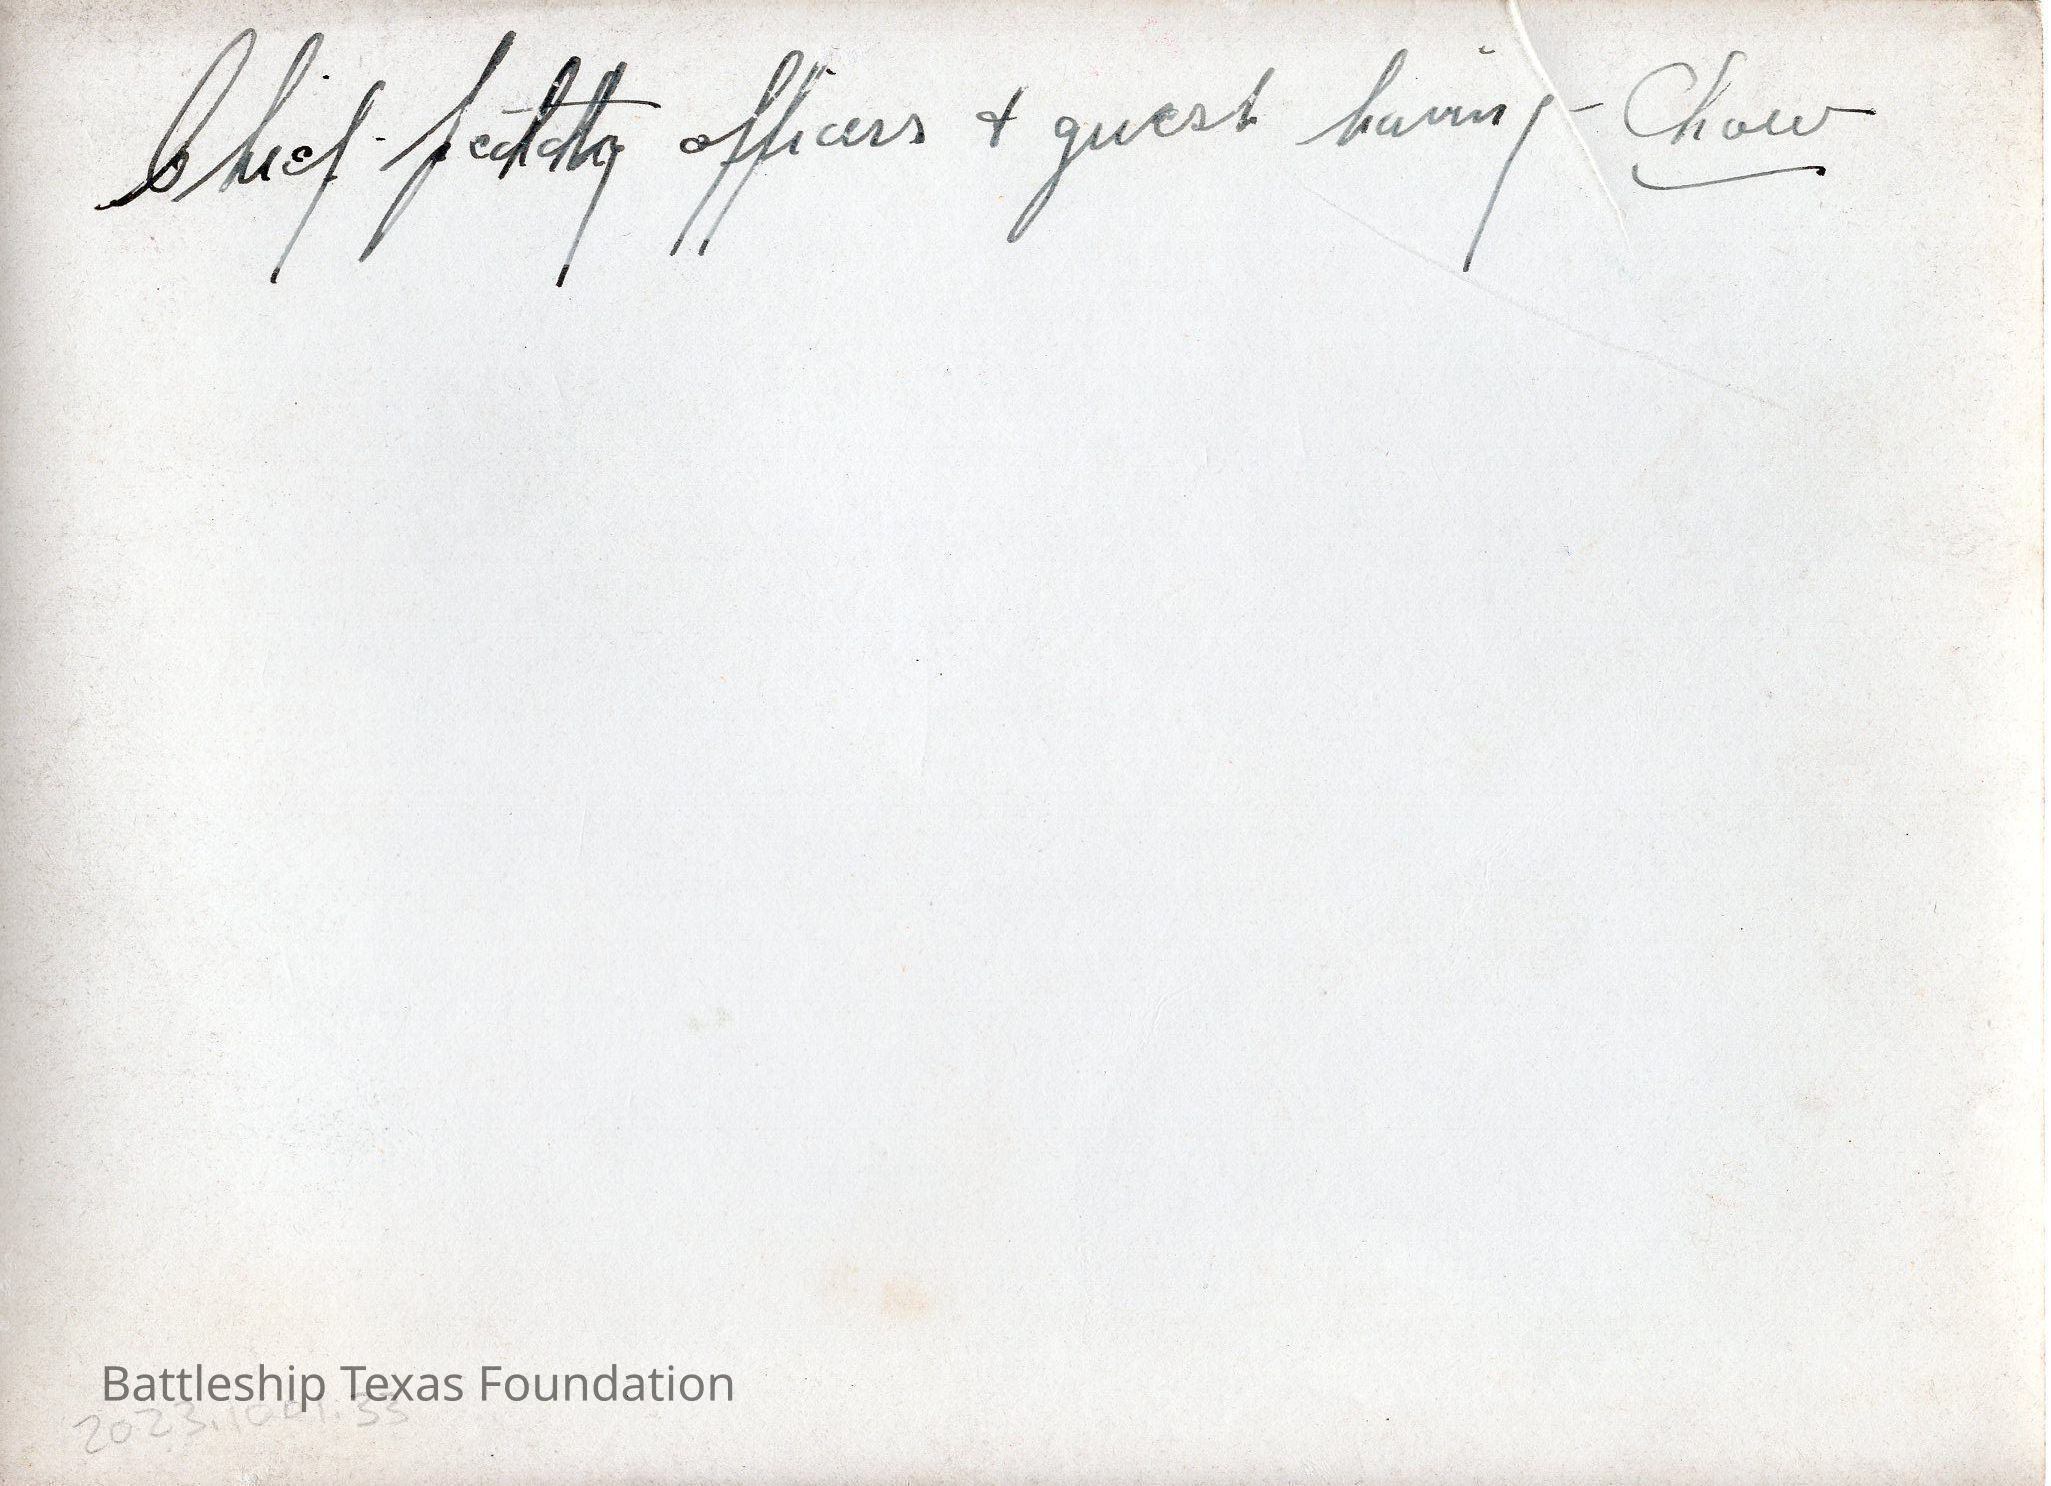 Chief petty officers + guest having Chow
Battleship Texas Foundation
2023.1001.33